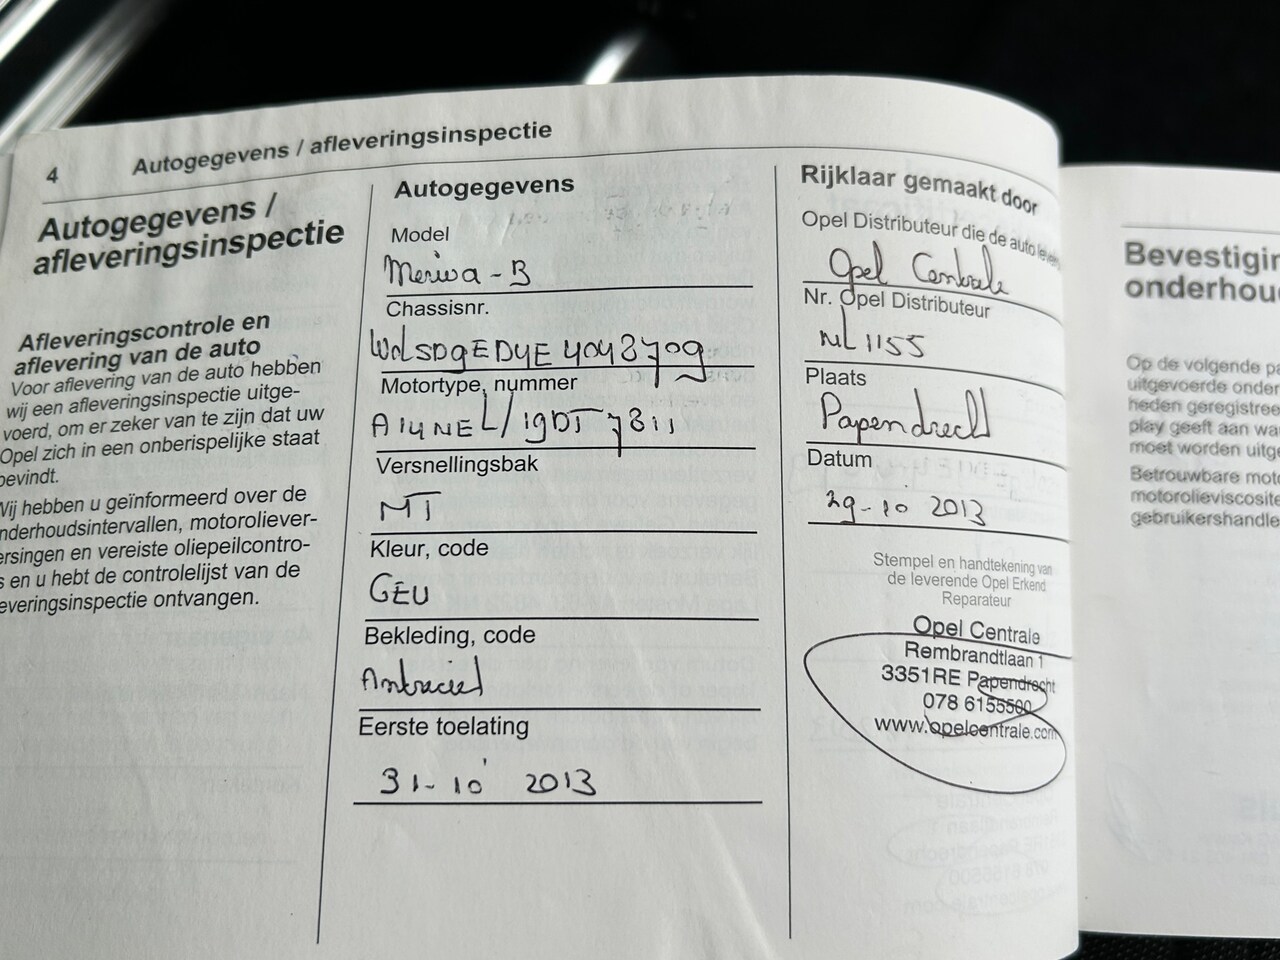 4 Autogegevens / afleveringsinspectie
Autogegevens /
afleveringsinspectie
Afleveringscontrole en
aflevering van de auto
Voor aflevering van de auto hebben
wij een afleveringsinspectie uitge-
voerd, om er zeker van te zijn dat uw
Opel zich in een onberispelijke staat
bevindt.
Wij hebben u geïnformeerd over de
nderhoudsintervallen, motoroliever-
ersingen en vereiste oliepeilcontro-
s en u hebt de controlelijst van de
everingsinspectie ontvangen.
Autogegevens
Model
Meriva - B
Chassisnr.
W0LSD9EDYE4043709
Motortype, nummer
A14NEL/19DT7811
Versnellingsbak
MT
Kleur, code
GEU
Bekleding, code
Antraciet
Eerste toelating
31-10 2013
Rijklaar gemaakt door
Opel Distributeur die de auto
Opel Centrale
Nr. Opel Distributeur
NL1155
Plaats
Papendrecht
Datum
29-10 2013
Stempel en handtekening van
de leverende Opel Erkend
Reparateur
Opel Centrale
Rembrandtlaan 1
3351RE Papendrecht
078 6155500
www.opelcentrale.com
Bevestigin
onderhou
Op de volgende pa
uitgevoerde onder
heden geregistree
play geeft aan wa
moet worden uitge
Betrouwbare moto
motorolieviscosite
gebruikershandle